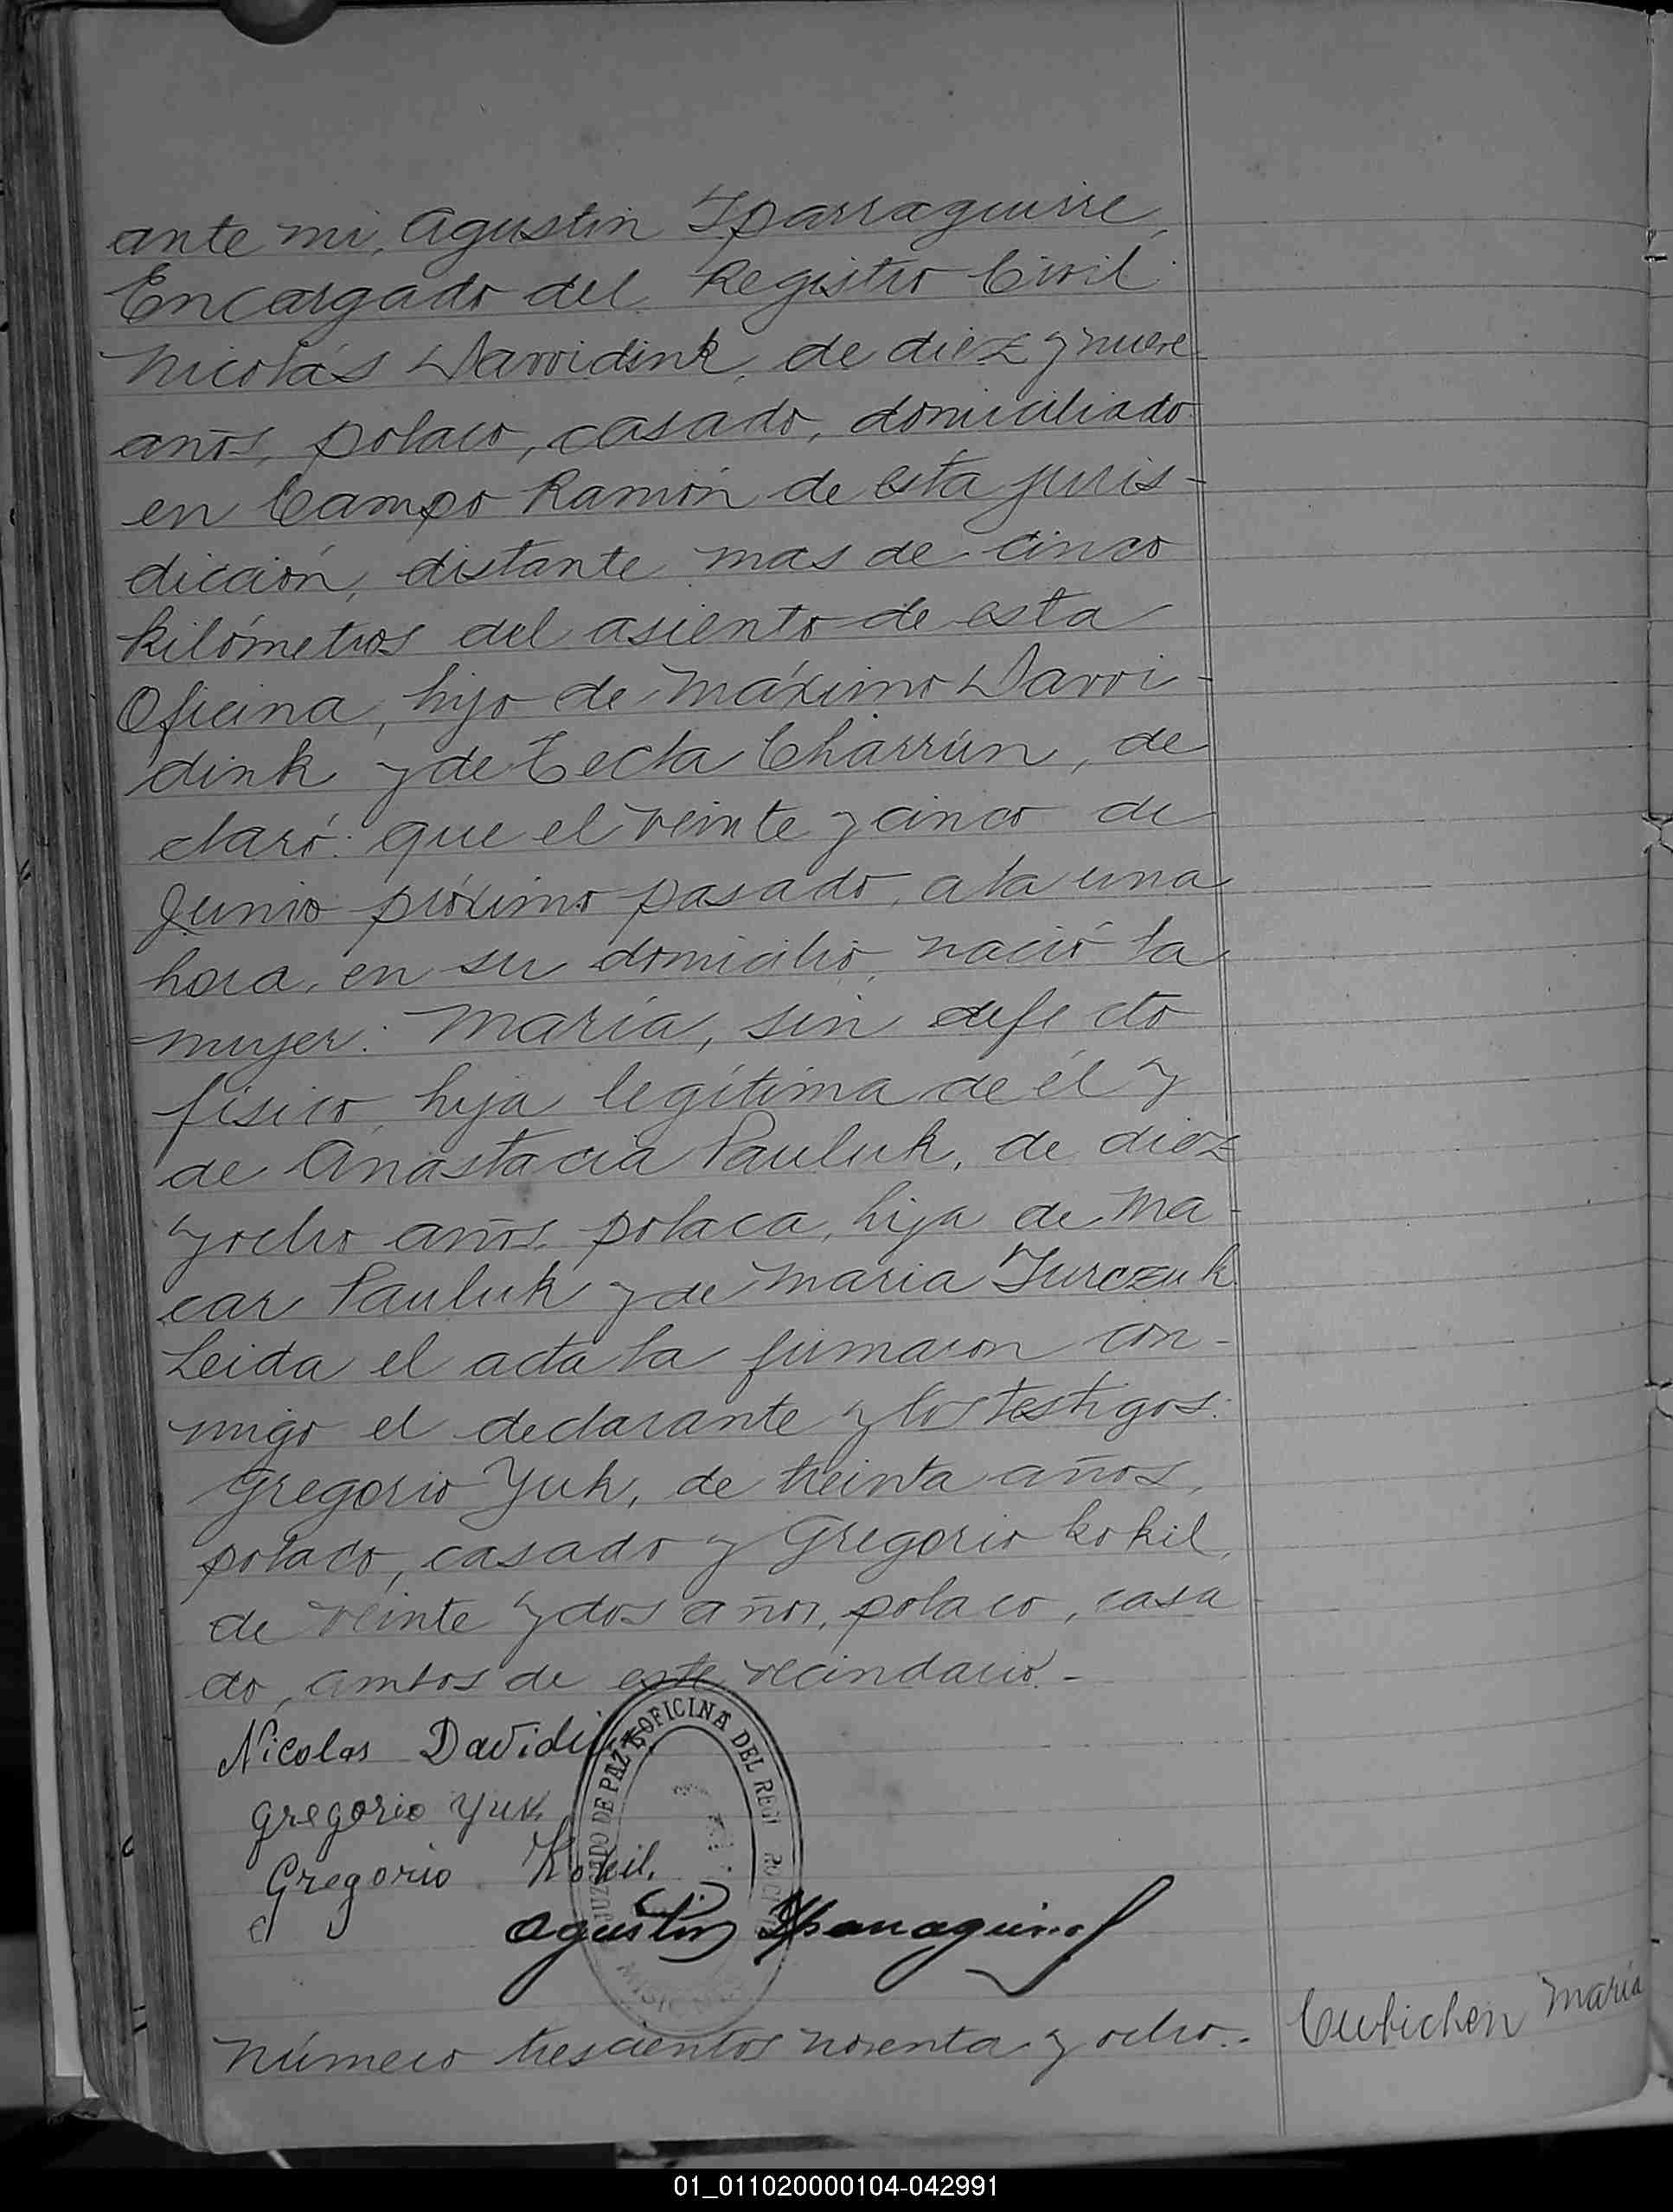 ante mi, Agustin Yparraguirre,
Encargado del Registro Civil
Nicolás Davvidink, de diez y nueve
años, polaco, casado, domiciliado
en Campo Ramón de esta juris-
dicción, distante mas de cinco
kilómetros del asiento de esta
Oficina, hijo de Máximo Davvi-
dink y de Tecla Charrún, de
claró: que el veinte y cinco de
Junio próximo pasado, a la una
hora, en su domicilio, nació la
mujer: María, sin defecto
físico, hija legítima de él y
de Anastacia Pauluk, de diez
y ocho años, polaca, hija de Ma-
car Pauluk y de Maria Jurczuk
Leida el acta la firmaron con-
migo el declarante y los testigos:
Gregorio Yuk, de treinta años,
polaco, casado y Gregorio Kokil,
de veinte y dos años, polaco, casa
do, ambos de este vecindario.-
Nicolas Davidi
JUZGADO DE PAZ Y OFICINA DEL REGI RO CI
MISIONES
Gregorio Yuk
Gregorio Kokil.
Agustin Yparraguirre
Número trescientos noventa y ocho.-
Cubichen María
01_011020000104-042991